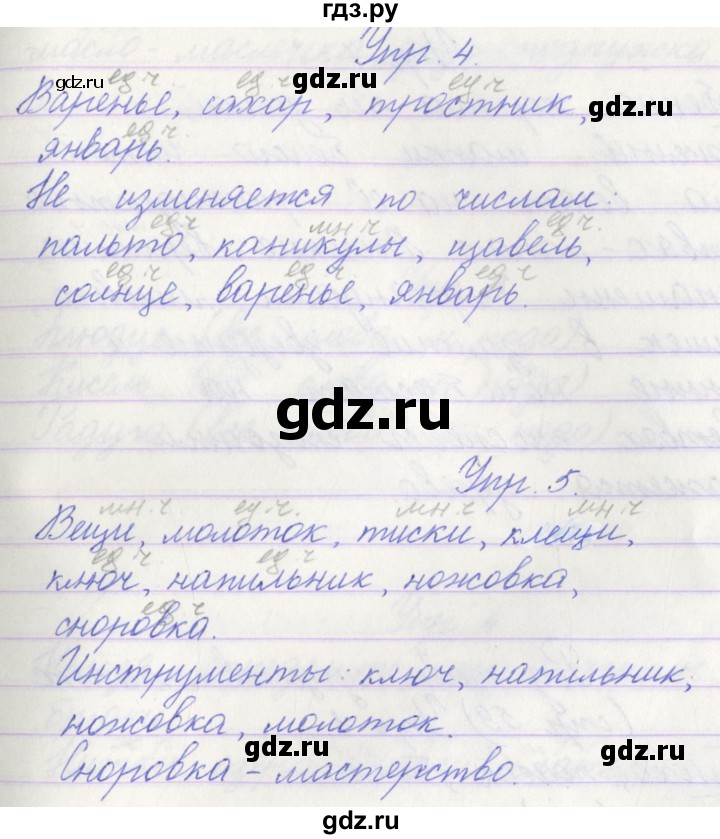 гдз.ру
Упр. 4.
ед.ч ед.ч ед.ч
gdz.ru gdz.ru gdz.ru
Варенье, сахар, тростник,
ед.ч
январь.
Не изменяется по числам:
ед.ч мн.ч ед.ч.
пальто, каникулы, щавель,
ед.ч ед.ч ед.ч
солнце, варенье, январь.
gdz.ru
Упр. 5.
мн.ч ед.ч. мн.ч мн.ч
Вещи, молоток, тиски, клещи,
ед.ч ед.ч
ключ, напильник, ножовка,
ед.ч
сноровка.
Инструменты: ключ, напильник,
ножовка, молоток.
gdz.ru gdz.ru
Сноровка - мастерство.
gdz.ru